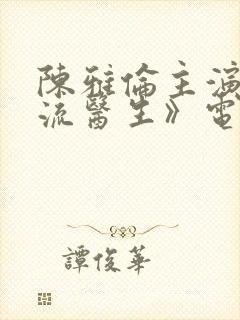 陳雅倫主演
流醫生》電
譚俊華